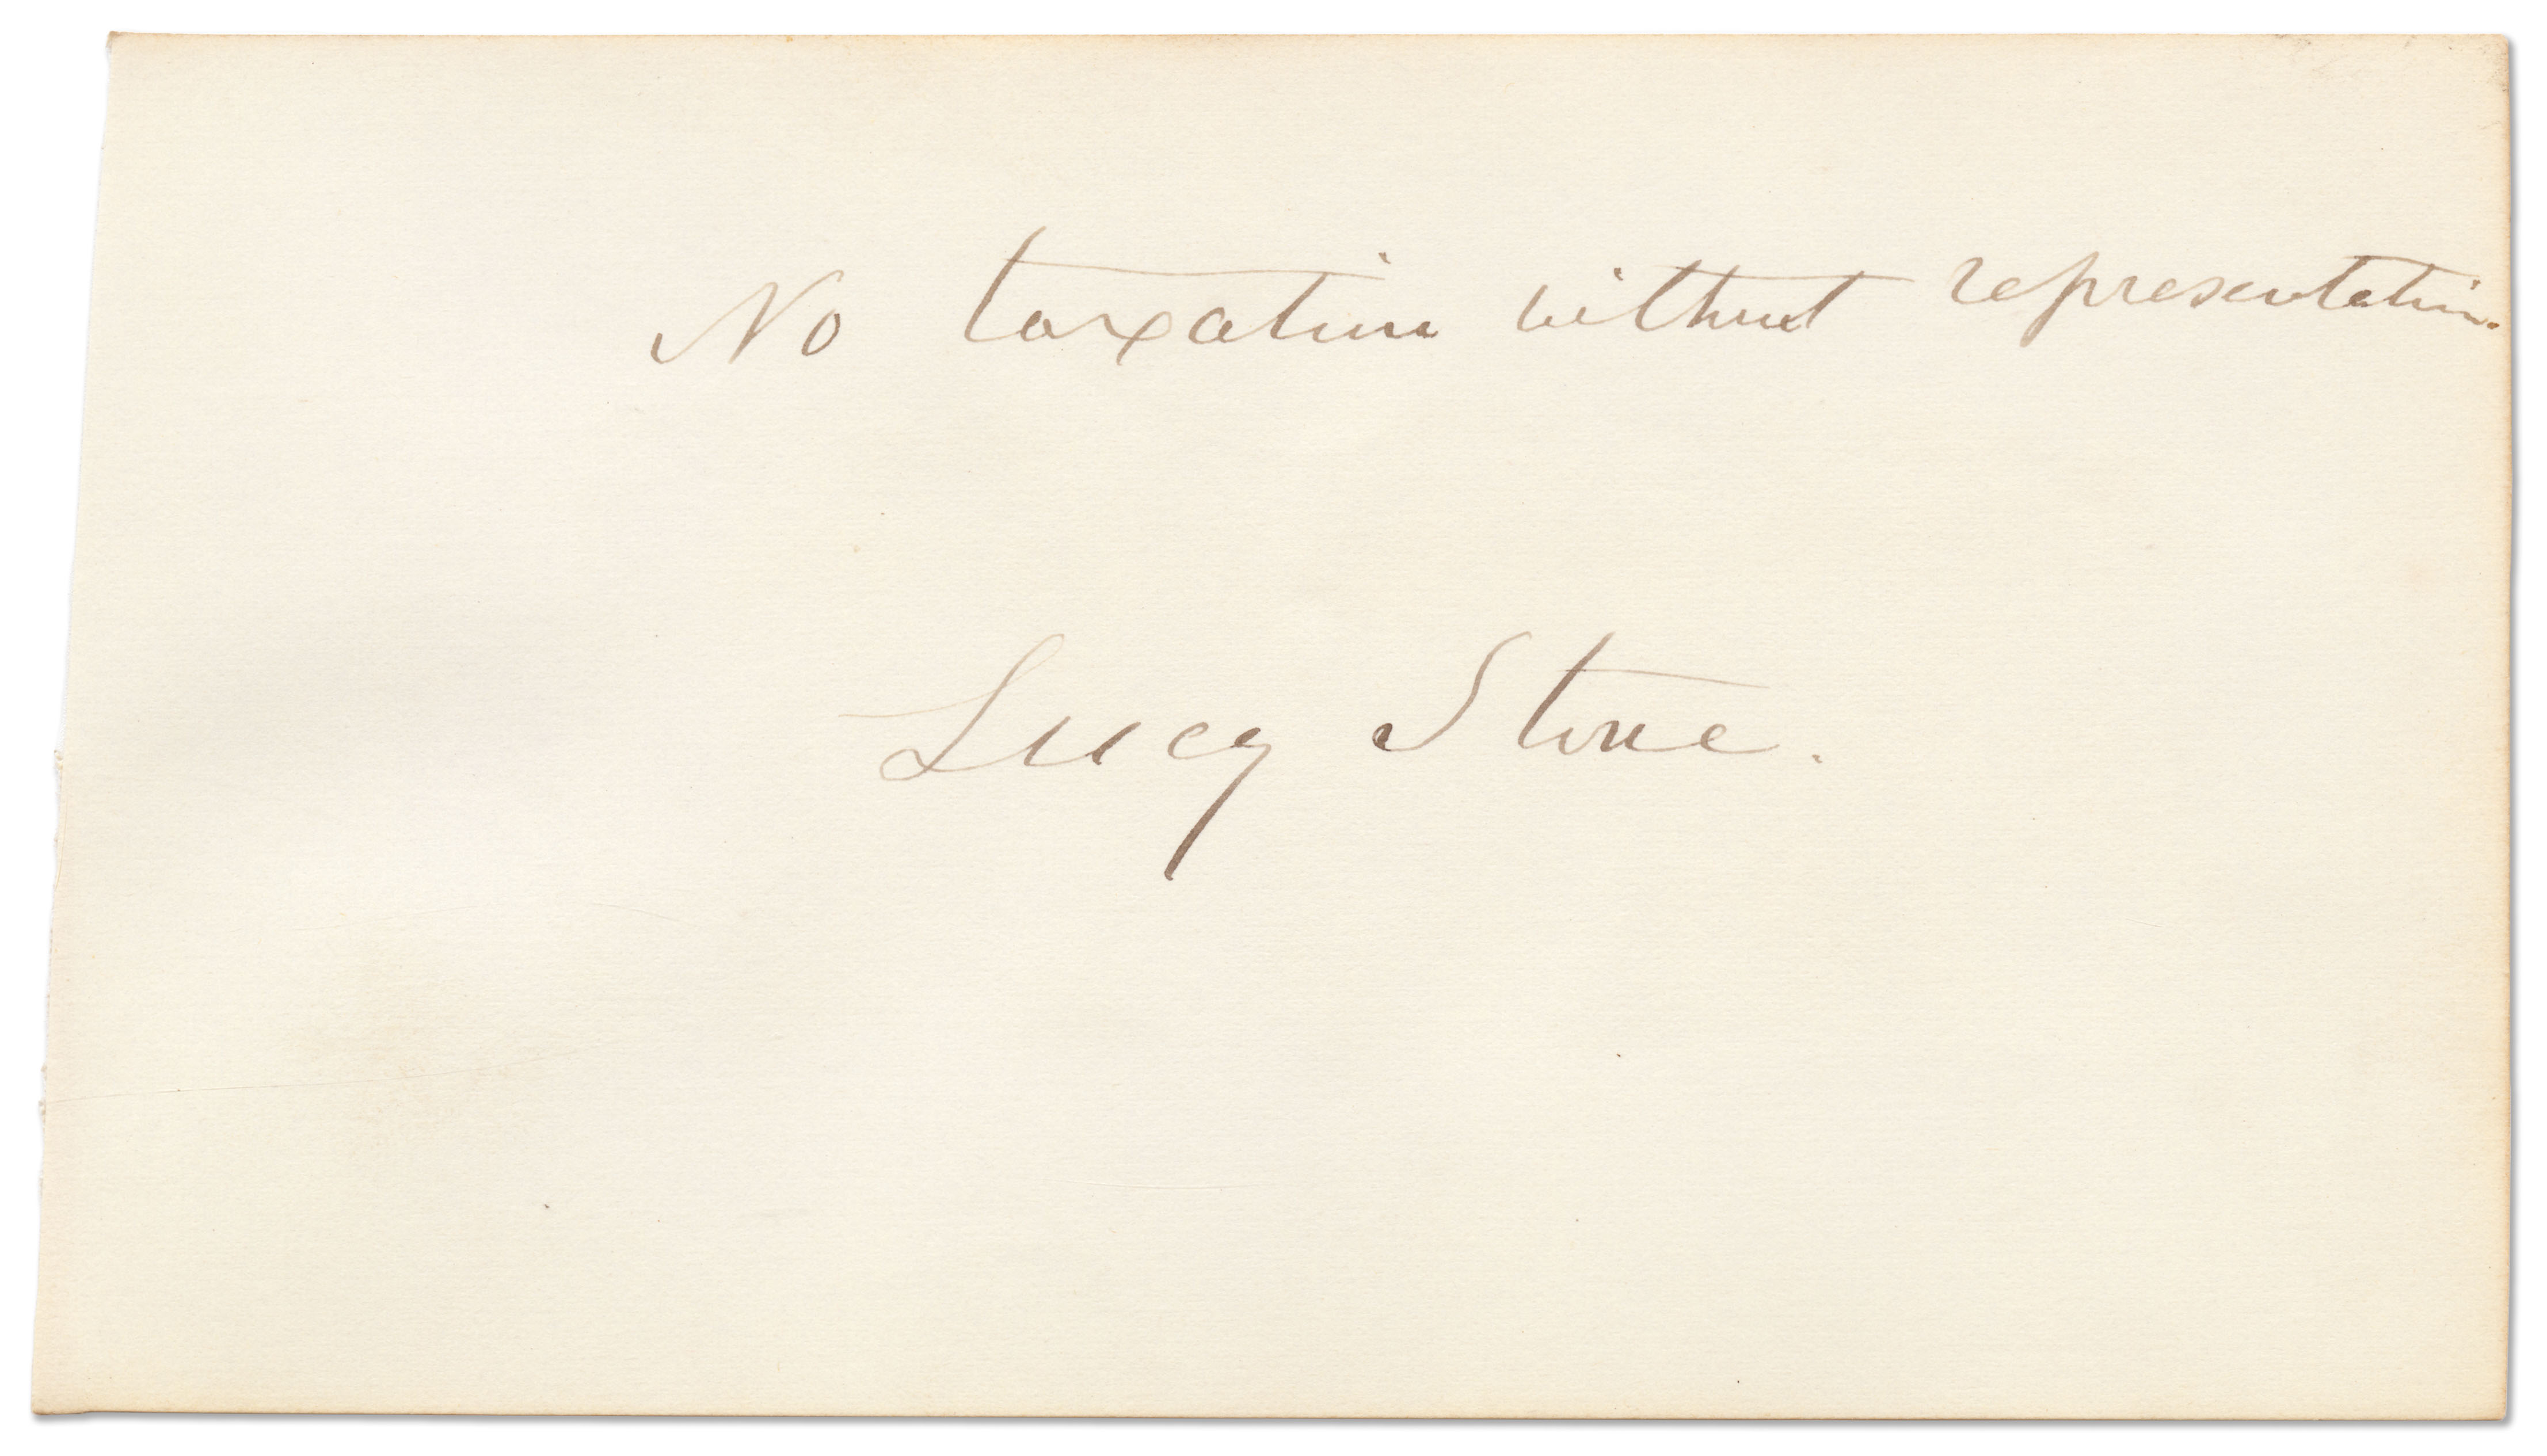 No taxation without representation.
Lucy Stone.